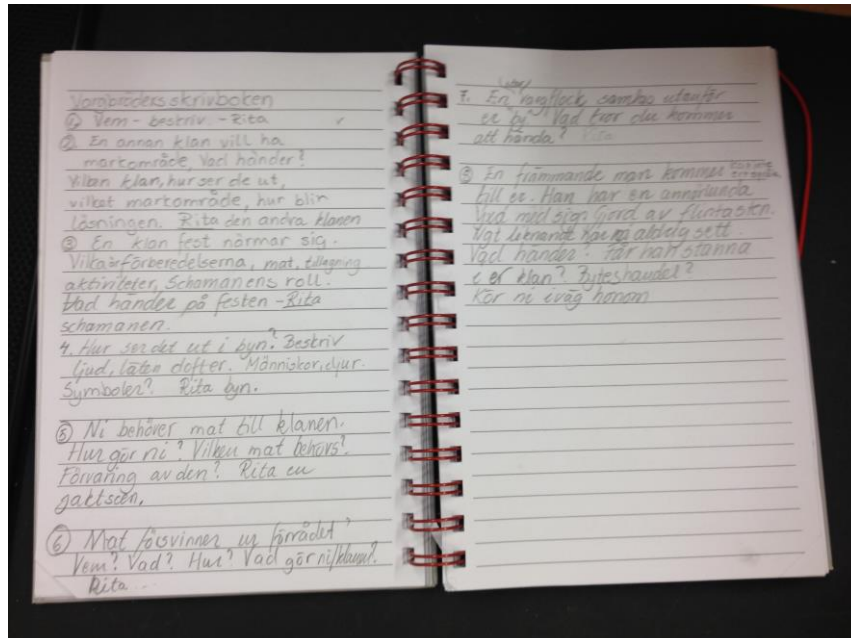 Vargbröders skrivboken
① Vem - beskriv. - Rita
② En annan klan vill ha
markområde, Vad händer?
Vilken klan, hur ser de ut,
vilket markområde, hur blir
lösningen. Rita den andra klanen
③ En klan fest närmar sig.
Vilka är förberedelserna, mat, tillagning
aktiviteter, Schamanens roll.
Vad händer på festen - Rita
schamanen.
4. Hur ser det ut i byn? Beskriv
ljud, läten dofter. Människor, djur.
Symboler? Rita byn.
⑤ Ni behöver mat till klanen.
Hur gör ni? Vilken mat behövs?
Förvaring av den? Rita en
jaktscen.
⑥ Mat försvinner ur förrådet?
Vem? Vad? Hur? Vad gör ni/klanen?
Rita ...
7. En vargflock samlas utanför
er by. Vad tror du kommer
att hända? Rita
⑧ En främmande man kommer
till er. Han har en annorlunda
med sig gjord av flintasten.
liknande har ni aldrig sett.
Vad händer? Får han stanna
i er klan? Byteshandel?
Kör ni iväg honom